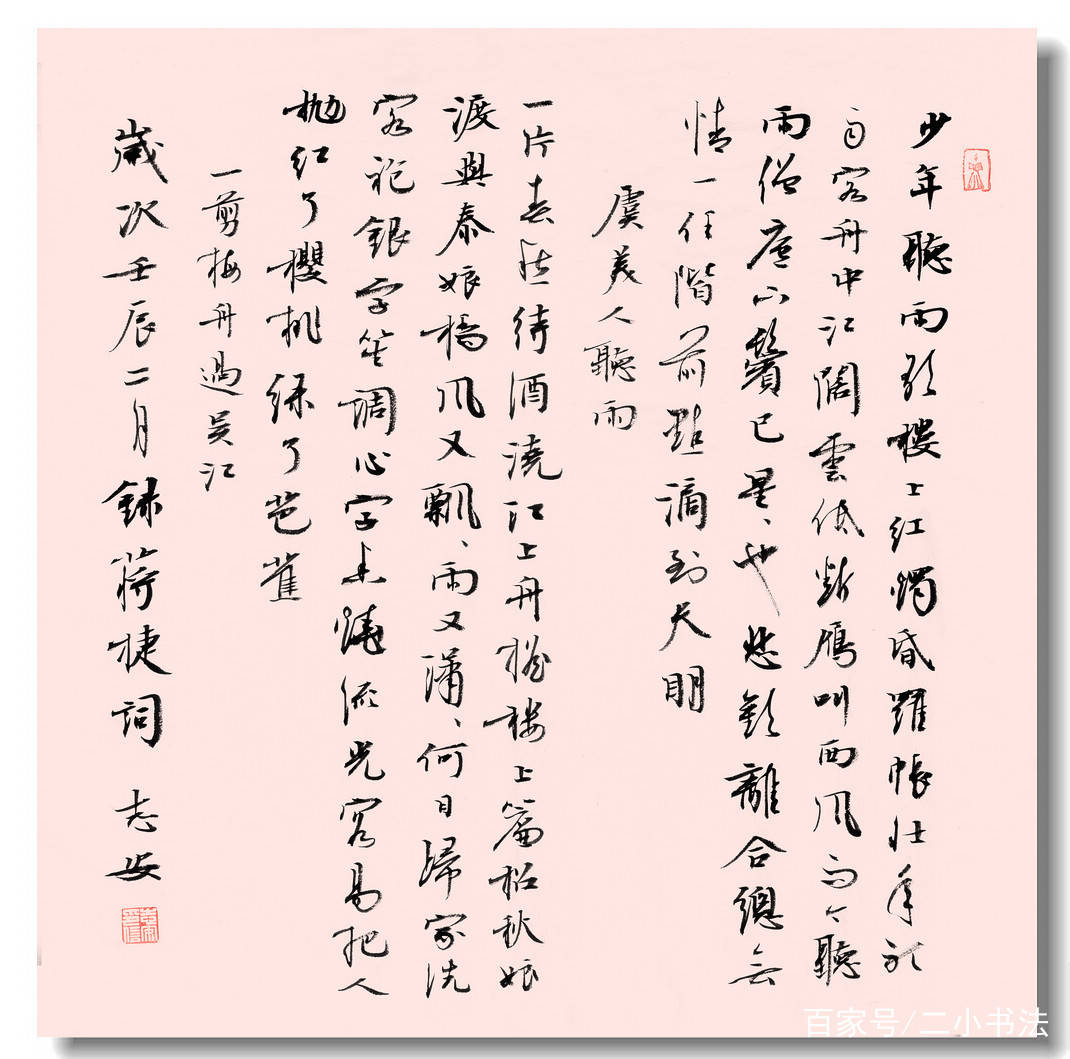 少年聽雨歌樓上紅燭昏羅帳壯年聽
雨客舟中江闊雲低斷鴈叫西風而今聽
雨僧廬下鬢已星、也悲歡離合總無
情一任階前點滴到天明
虞美人聽雨
一片春愁待酒澆江上舟搖樓上簾招秋娘
渡與泰娘橋風又飄、雨又瀟、何日歸家洗
客袍銀字笙調心字香燒流光容易把人
拋紅了櫻桃綠了芭蕉
一剪梅舟過吳江
歲次壬辰二月錄蔣捷詞 志安
百家号/二小书法